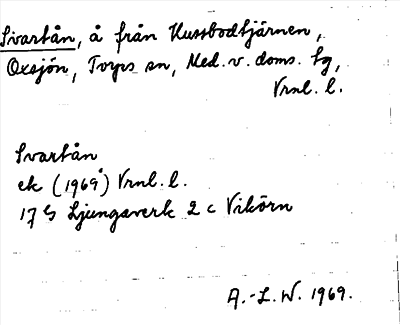 Svartån, å från Kussbodtjärnen,
Oxsjön, Torps sn, Med. v. doms. tg,
Vrnl. l.
Svartån
ek (1969) Vrnl. l.
17 G Ljungaverk 2 c Vikörn
A.-L. W. 1969.